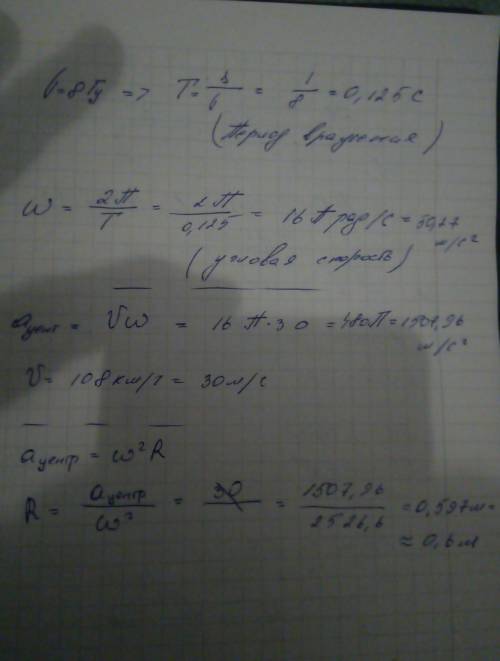 υ=8Гц => T= 1/υ = 1/8 = 0,125 с
(Период вращения)
ω = 2П/T = 2П/0,125 = 16П рад/с = 50,27 м/с²
(угловая скорость)
aцент = Vω = 16П·30 = 480П = 1507,96 м/с²
V = 108 км/ч = 30 м/с
aцентр = ω²R
R = aцентр/ω² = 30 = 1507,96/2526,6 = 0,597м =
≈ 0,6 м